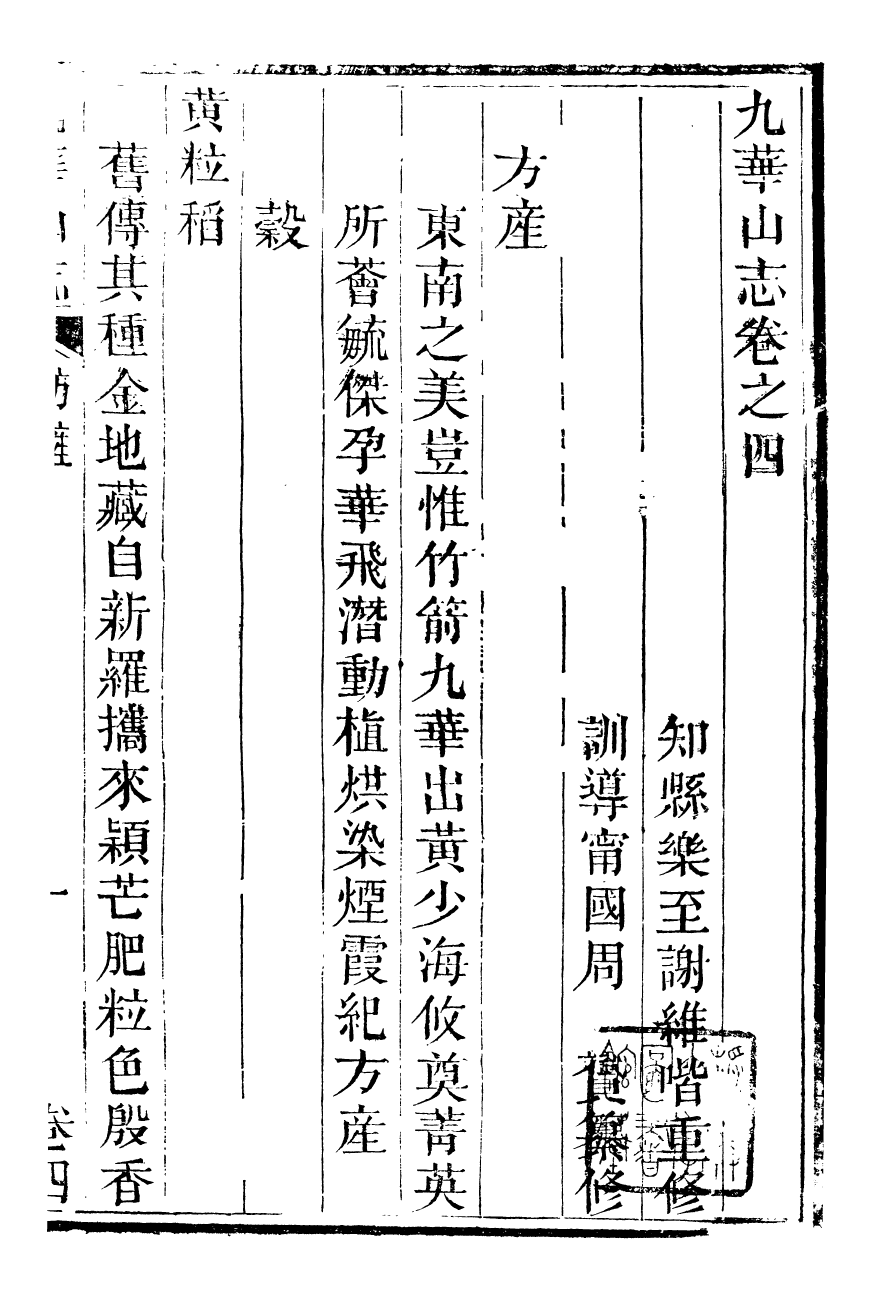 九華山志卷之四
知縣樂至謝維喈重修
訓導甯國周　贇纂修
方産
東南之美豈惟竹箭九華出黃少海攸奠菁英
所薈毓傑孕華飛潛動植烘染煙霞紀方産
穀
黃粒稻
舊傳其種金地藏自新羅攜來穎芒肥粒色殷香
九華山志
方產
一
卷四